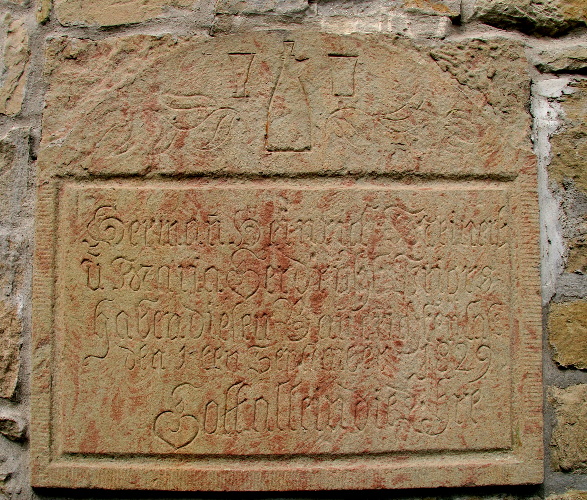 7 7
Hermañ Heinrich
ū Maria Gerdruth
haben diesen Bau
den 1ten September 1829
Gott allein die Ehre